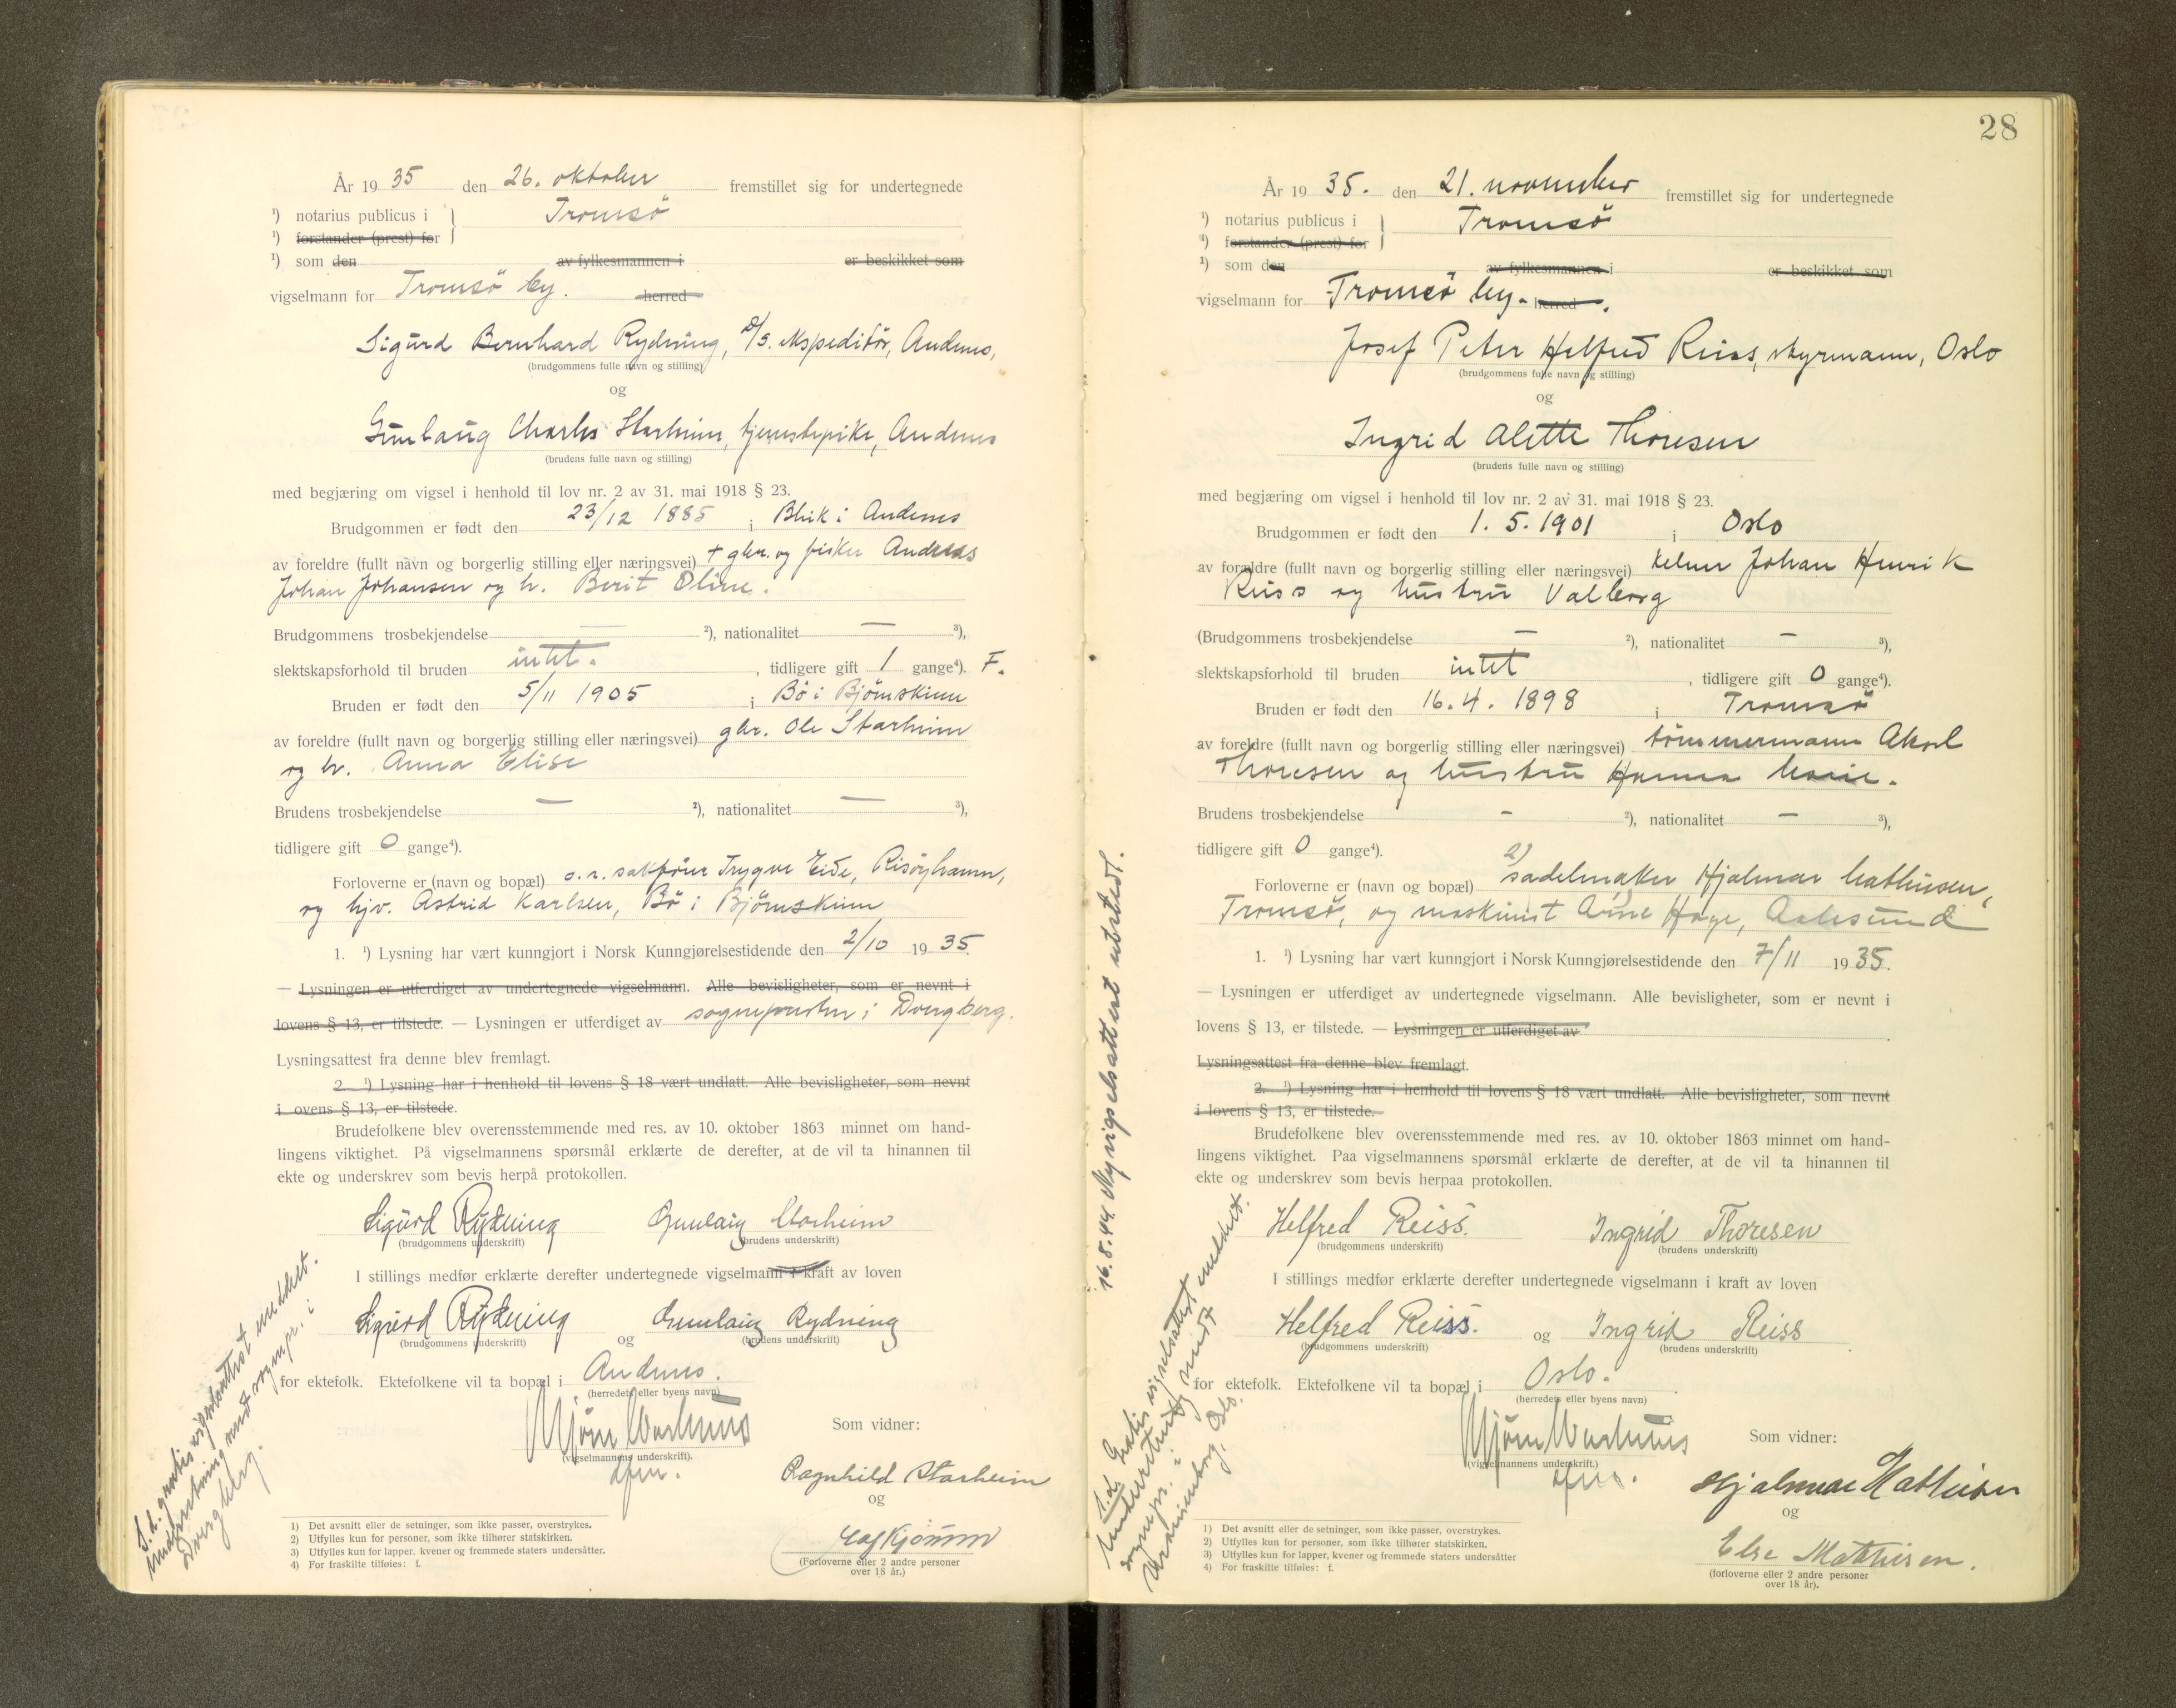 År 19 35 den 26. oktober fremstillet sig for undertegnede
¹) notarius publicus i } Tromsö
¹) forstander (prest) for
¹) som den av fylkesmannen i er beskikket som
vigselmann for Tromsö by. herred
Sigurd Bernhard Rydning, D/S. ekspeditör, Andenes,
(brudgommens fulle navn og stilling)
og
Gunlaug Charles Starheim, tjenestepike, Andenes
(brudens fulle navn og stilling)
med begjæring om vigsel i henhold til lov nr. 2 av 31. mai 1918 § 23.
Brudgommen er født den 23/12 1885 i Bleik i Andenes
av foreldre (fullt navn og borgerlig stilling eller næringsvei) + gbr. og fisker Andreas
Johan Johansen og h. Berit Oline.
Brudgommens trosbekjendelse — ²), nationalitet — ³),
slektskapsforhold til bruden intet. , tidligere gift 1 gange⁴). F.
Bruden er født den 5/11 1905 i Bö i Bjömskinn
av foreldre (fullt navn og borgerlig stilling eller næringsvei) gbr. Ole Starheim
og h. Anna Elise
Brudens trosbekjendelse — ²), nationalitet — ³),
tidligere gift 0 gange⁴).
Forloverne er (navn og bopæl) o. r. sakförer Trygve Eide, Risöyhamn,
og hjv. Astrid Karlsen, Bö i Bjömskinn
1. ¹) Lysning har vært kunngjort i Norsk Kunngjørelsestidende den 2/10 19 35.
— Lysningen er utferdiget av undertegnede vigselmann. Alle bevisligheter, som er nevnt i
lovens § 13, er tilstede. — Lysningen er utferdiget av sognepresten i Dverberg.
Lysningsattest fra denne blev fremlagt.
2. ¹) Lysning har i henhold til lovens § 18 vært undlatt. Alle bevisligheter, som nevnt
i ovens § 13, er tilstede.
Brudefolkene blev overensstemmende med res. av 10. oktober 1863 minnet om hand-
lingens viktighet. På vigselmannens spørsmål erklærte de derefter, at de vil ta hinannen til
ekte og underskrev som bevis herpå protokollen.
Sigurd Rydning Gunlaug Starheim
(brudgommens underskrift) (brudens underskrift)
I stillings medfør erklærte derefter undertegnede vigselmann i kraft av loven
Sigurd Rydning og Gunlaug Rydning
(brudgommens underskrift) (brudens underskrift)
for ektefolk. Ektefolkene vil ta bopæl i Andenes.
(herredets eller byens navn)
(vigselmannens underskrift).
Som vidner:
Ragnhild Starheim
og
(Forloverne eller 2 andre personer
over 18 år.)
1) Det avsnitt eller de setninger, som ikke passer, overstrykes.
2) Utfylles kun for personer, som ikke tilhører statskirken.
3) Utfylles kun for lapper, kvener og fremmede staters undersåtter.
4) For fraskilte tilføies: f.
S. d. gratis vigselsattest meddelt.
Underretning sendt sognepr. i
Dverberg.
28
År 19 35. den 21. november fremstillet sig for undertegnede
¹) notarius publicus i } Tromsö
¹) forstander (prest) for
¹) som den av fylkesmannen i er beskikket som
vigselmann for Tromsö by. herred.
Josef Peter Helfred Reiss, styrmann, Oslo
(brudgommens fulle navn og stilling)
og
Ingrid Alette Thoresen
(brudens fulle navn og stilling)
med begjæring om vigsel i henhold til lov nr. 2 av 31. mai 1918 § 23.
Brudgommen er født den 1. 5. 1901 i Oslo
av foreldre (fullt navn og borgerlig stilling eller næringsvei) kelner Johan Henrik
Reiss og hustru Valborg
(Brudgommens trosbekjendelse — ²), nationalitet — ³),
slektskapsforhold til bruden intet , tidligere gift 0 gange⁴).
Bruden er født den 16. 4. 1898 i Tromsö
av foreldre (fullt navn og borgerlig stilling eller næringsvei) tömmermann Aksel
Thoresen og hustru Hanna Marie.
Brudens trosbekjendelse - ²), nationalitet — ³),
tidligere gift 0 gange⁴).
2)
Forloverne er (navn og bopæl) sadelmaker Hjalmar Mathiesen,
Tromsö, og maskinist Arne Hage, Aalesund
1. ¹) Lysning har vært kunngjort i Norsk Kunngjørelsestidende den 7/11 19 35.
— Lysningen er utferdiget av undertegnede vigselmann. Alle bevisligheter, som er nevnt i
lovens § 13, er tilstede. — Lysningen er utferdiget av
Lysningsattest fra denne blev fremlagt.
2. ¹) Lysning har i henhold til lovens § 18 vært undlatt. Alle bevisligheter, som nevnt
i lovens § 13, er tilstede.
Brudefolkene blev overensstemmende med res. av 10. oktober 1863 minnet om hand-
lingens viktighet. Paa vigselmannens spørsmål erklærte de derefter, at de vil ta hinannen til
ekte og underskrev som bevis herpaa protokollen.
Helfred Reiss. Ingrid Thoresen
(brudgommens underskrift) (brudens underskrift)
I stillings medfør erklærte derefter undertegnede vigselmann i kraft av loven
Helfred Reiss. og Ingrid Reiss
(brudgommens underskrift) (brudens underskrift)
for ektefolk. Ektefolkene vil ta bopæl i Oslo.
(herredets eller byens navn)
(vigselmannens underskrift.)
Som vidner:
Hjalmar Mathisen
og
Else Mathisen.
(forloverne eller 2 andre personer
over 18 år).
1) Det avsnitt eller de setninger, som ikke passer, overstrykes.
2) Utfylles kun for personer, som ikke tilhører statskirken.
3) Utfylles kun for lapper, kvener og fremmede staters undersåtter
4) For fraskilte tilføies: f.
16.8.44. Ny vigselsattest utstedt.
S.d. Gratis vigselsattest meddelt.
Underretning sendt
sognepr. i
Uranienborg, Oslo.